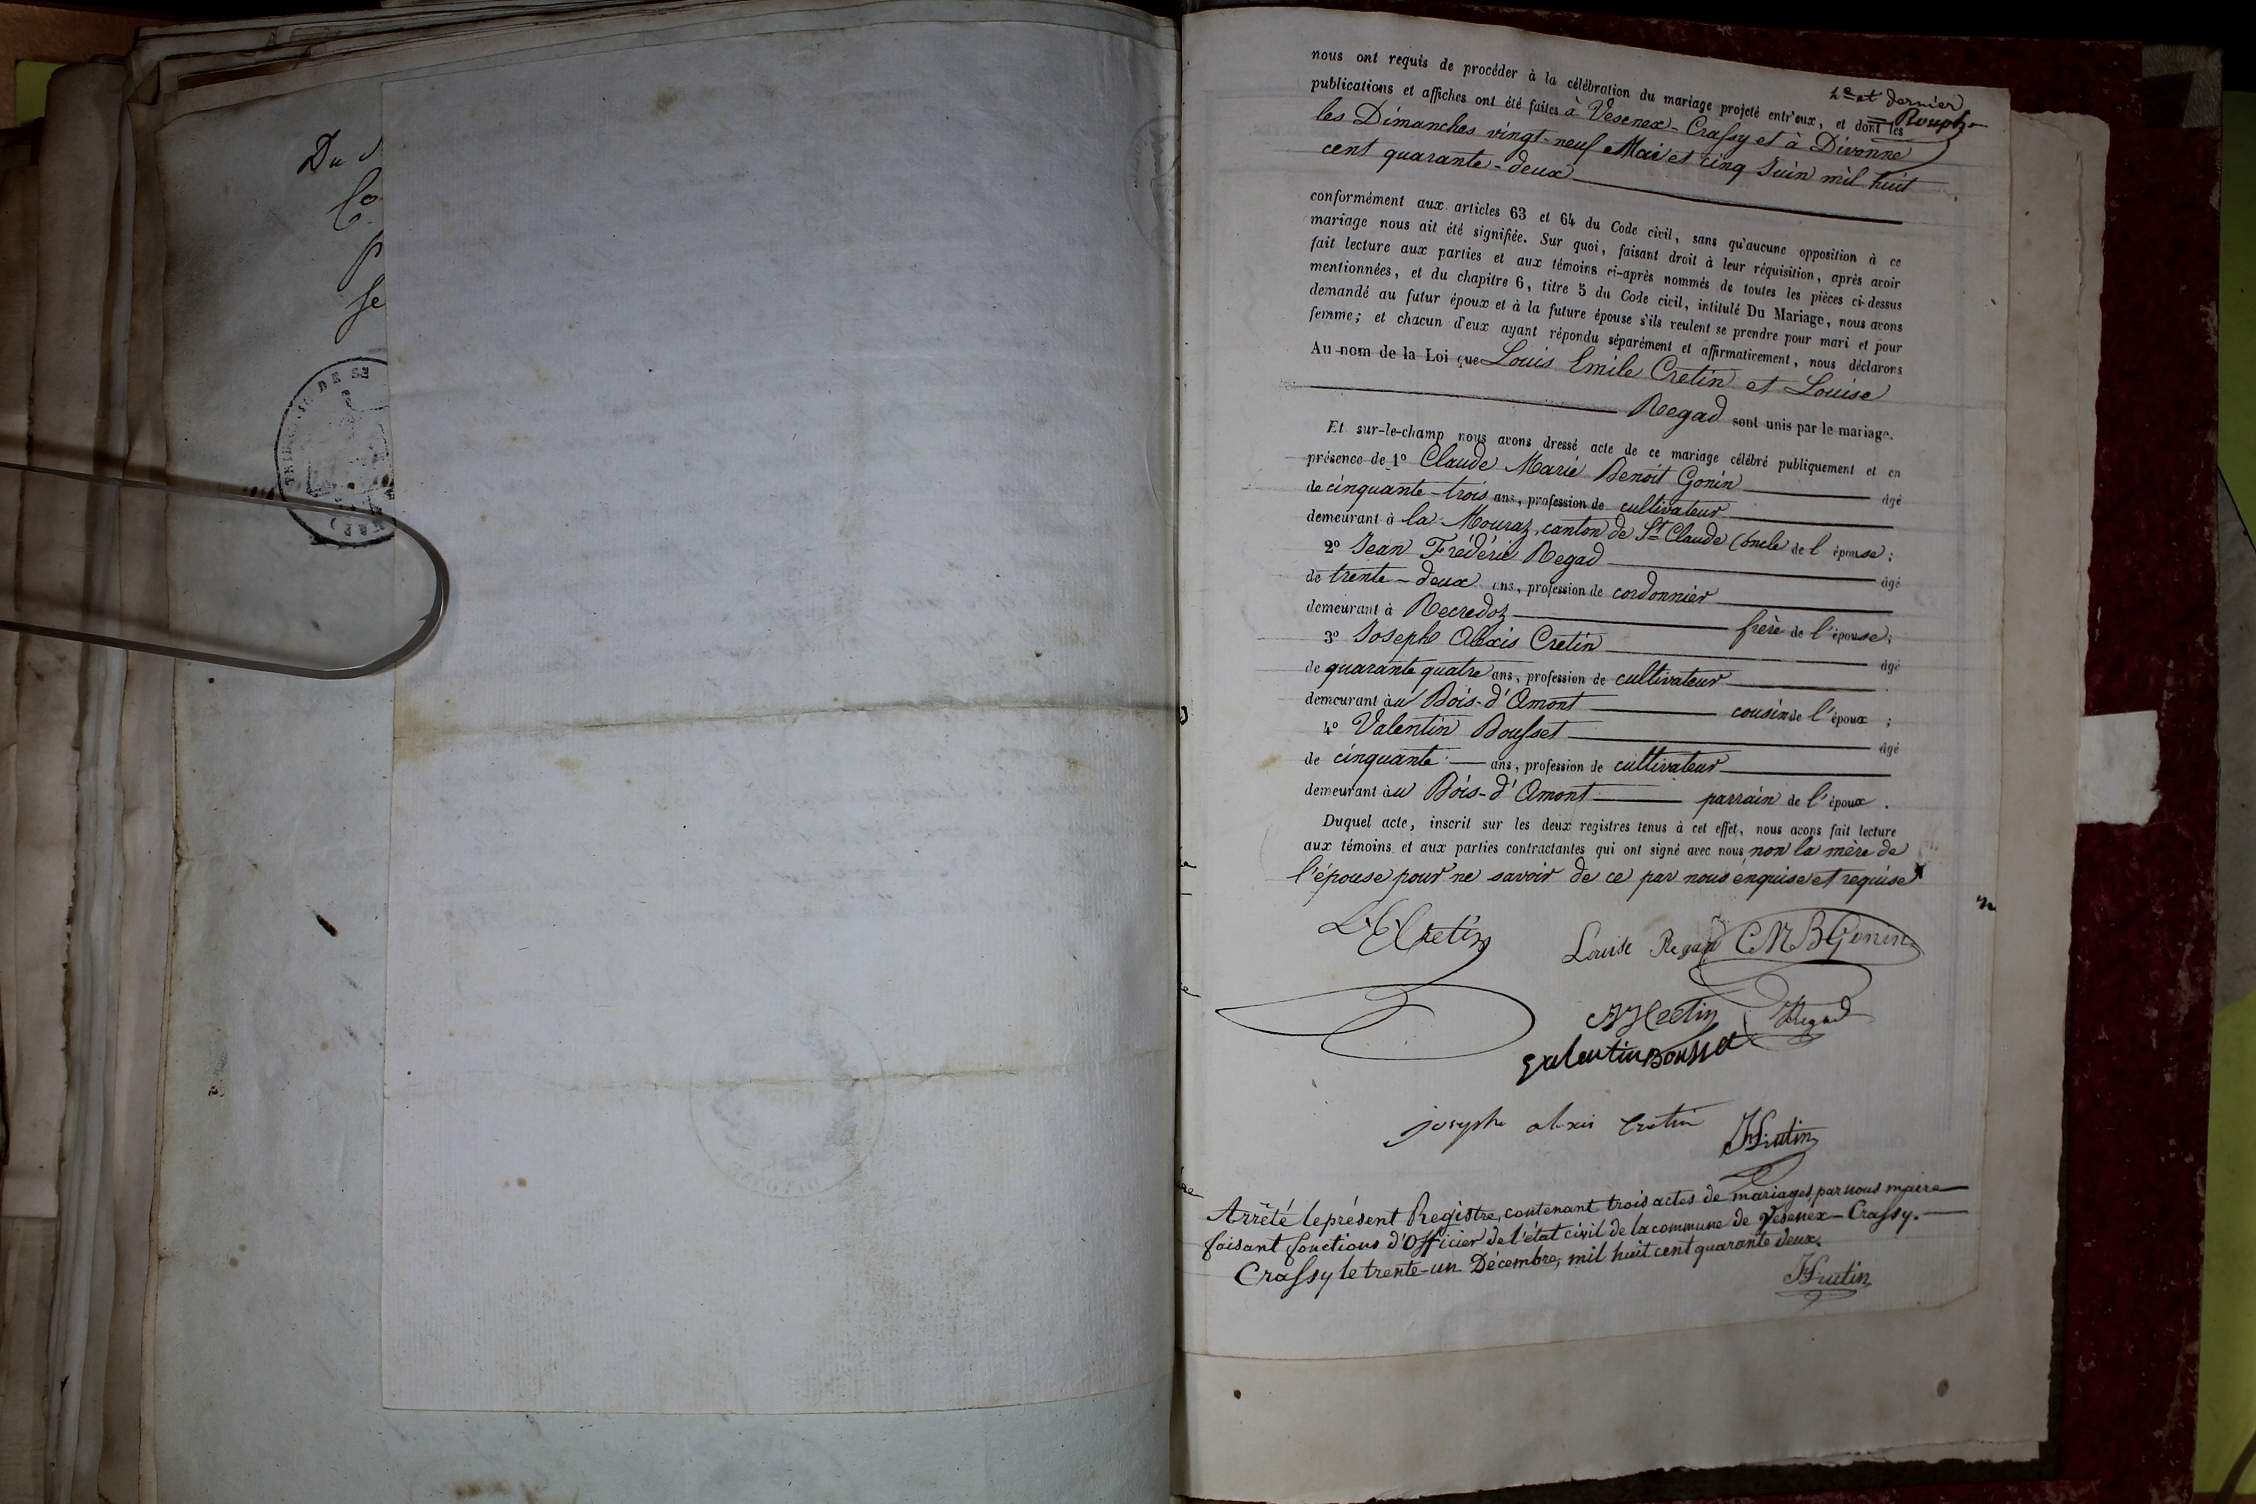 Du
Co
se
2e et dernier
Rouph
nous ont requis de procéder à la célébration du mariage projeté entr'eux, et dont les
publications et affiches ont été faites à Vesenex-Crassy et à Divonne
les Dimanches vingt-neuf Mai et cinq Juin mil huit
cent quarante-deux
conformément aux articles 63 et 64 du Code civil, sans qu'aucune opposition à ce
mariage nous ait été signifiée. Sur quoi, faisant droit à leur réquisition, après avoir
fait lecture aux parties et aux témoins ci-après nommés de toutes les pièces ci-dessus
mentionnées, et du chapitre 6, titre 5 du Code civil, intitulé Du Mariage, nous avons
demandé au futur époux et à la future épouse s'ils veulent se prendre pour mari et pour
femme; et chacun d'eux ayant répondu séparément et affirmativement, nous déclarons
Au nom de la Loi que Louis Emile Cretin et Louise
Regad sont unis par le mariage.
Et sur-le-champ nous avons dressé acte de ce mariage célébré publiquement et en
présence de 1º Claude Marie Benoit Gonin âgé
de cinquante-trois ans, profession de cultivateur
demeurant à la Mouraz, canton de St Claude (oncle de l'épouse;
2º Jean Frédéric Regad âgé
de trente-deux ans, profession de cordonnier
demeurant à Recredoz frère de l'épouse;
3º Joseph Alexis Cretin âgé
de quarante quatre ans, profession de cultivateur
demeurant au Bois-d'Amont cousin de l'époux;
4º Valentin Bousset âgé
de cinquante ans, profession de cultivateur
demeurant au Bois-d'Amont parrain de l'époux.
Duquel acte, inscrit sur les deux registres tenus à cet effet, nous avons fait lecture
aux témoins et aux parties contractantes qui ont signé avec nous, non la mère de
l'épouse pour ne savoir de ce par nous enquise et requise
L E Cretin
Louise Regad CMBGonin
Cretin Regad
Valentin Bousset
joseph alexis Cretin
Arrêté le présent Registre, contenant trois actes de mariages, par nous maire
faisant fonctions d'Officier de l'état civil de la commune de Vesenex-Crassy.
Crassy le trente-un Décembre, mil huit cent quarante deux.